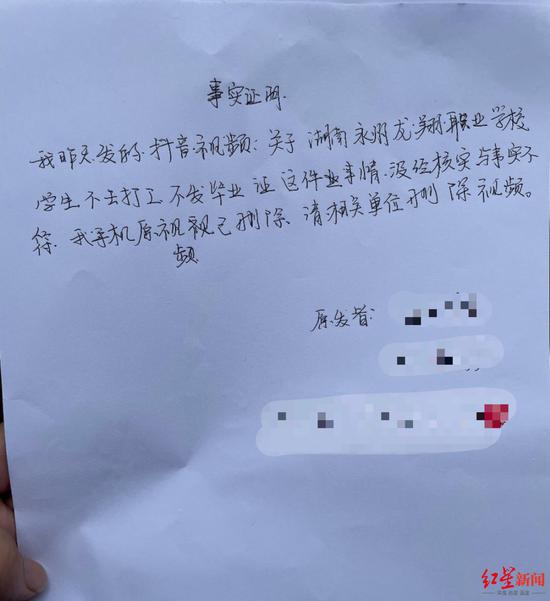 事实证明
我昨天发的抖音视频：关于湖南永州龙翔职业学校
学生不去打工不发毕业证这件业事情，没经核实与事实不
符，我手机原视视已删除，请相关单位删除视频。
频
原发者：
红星新闻